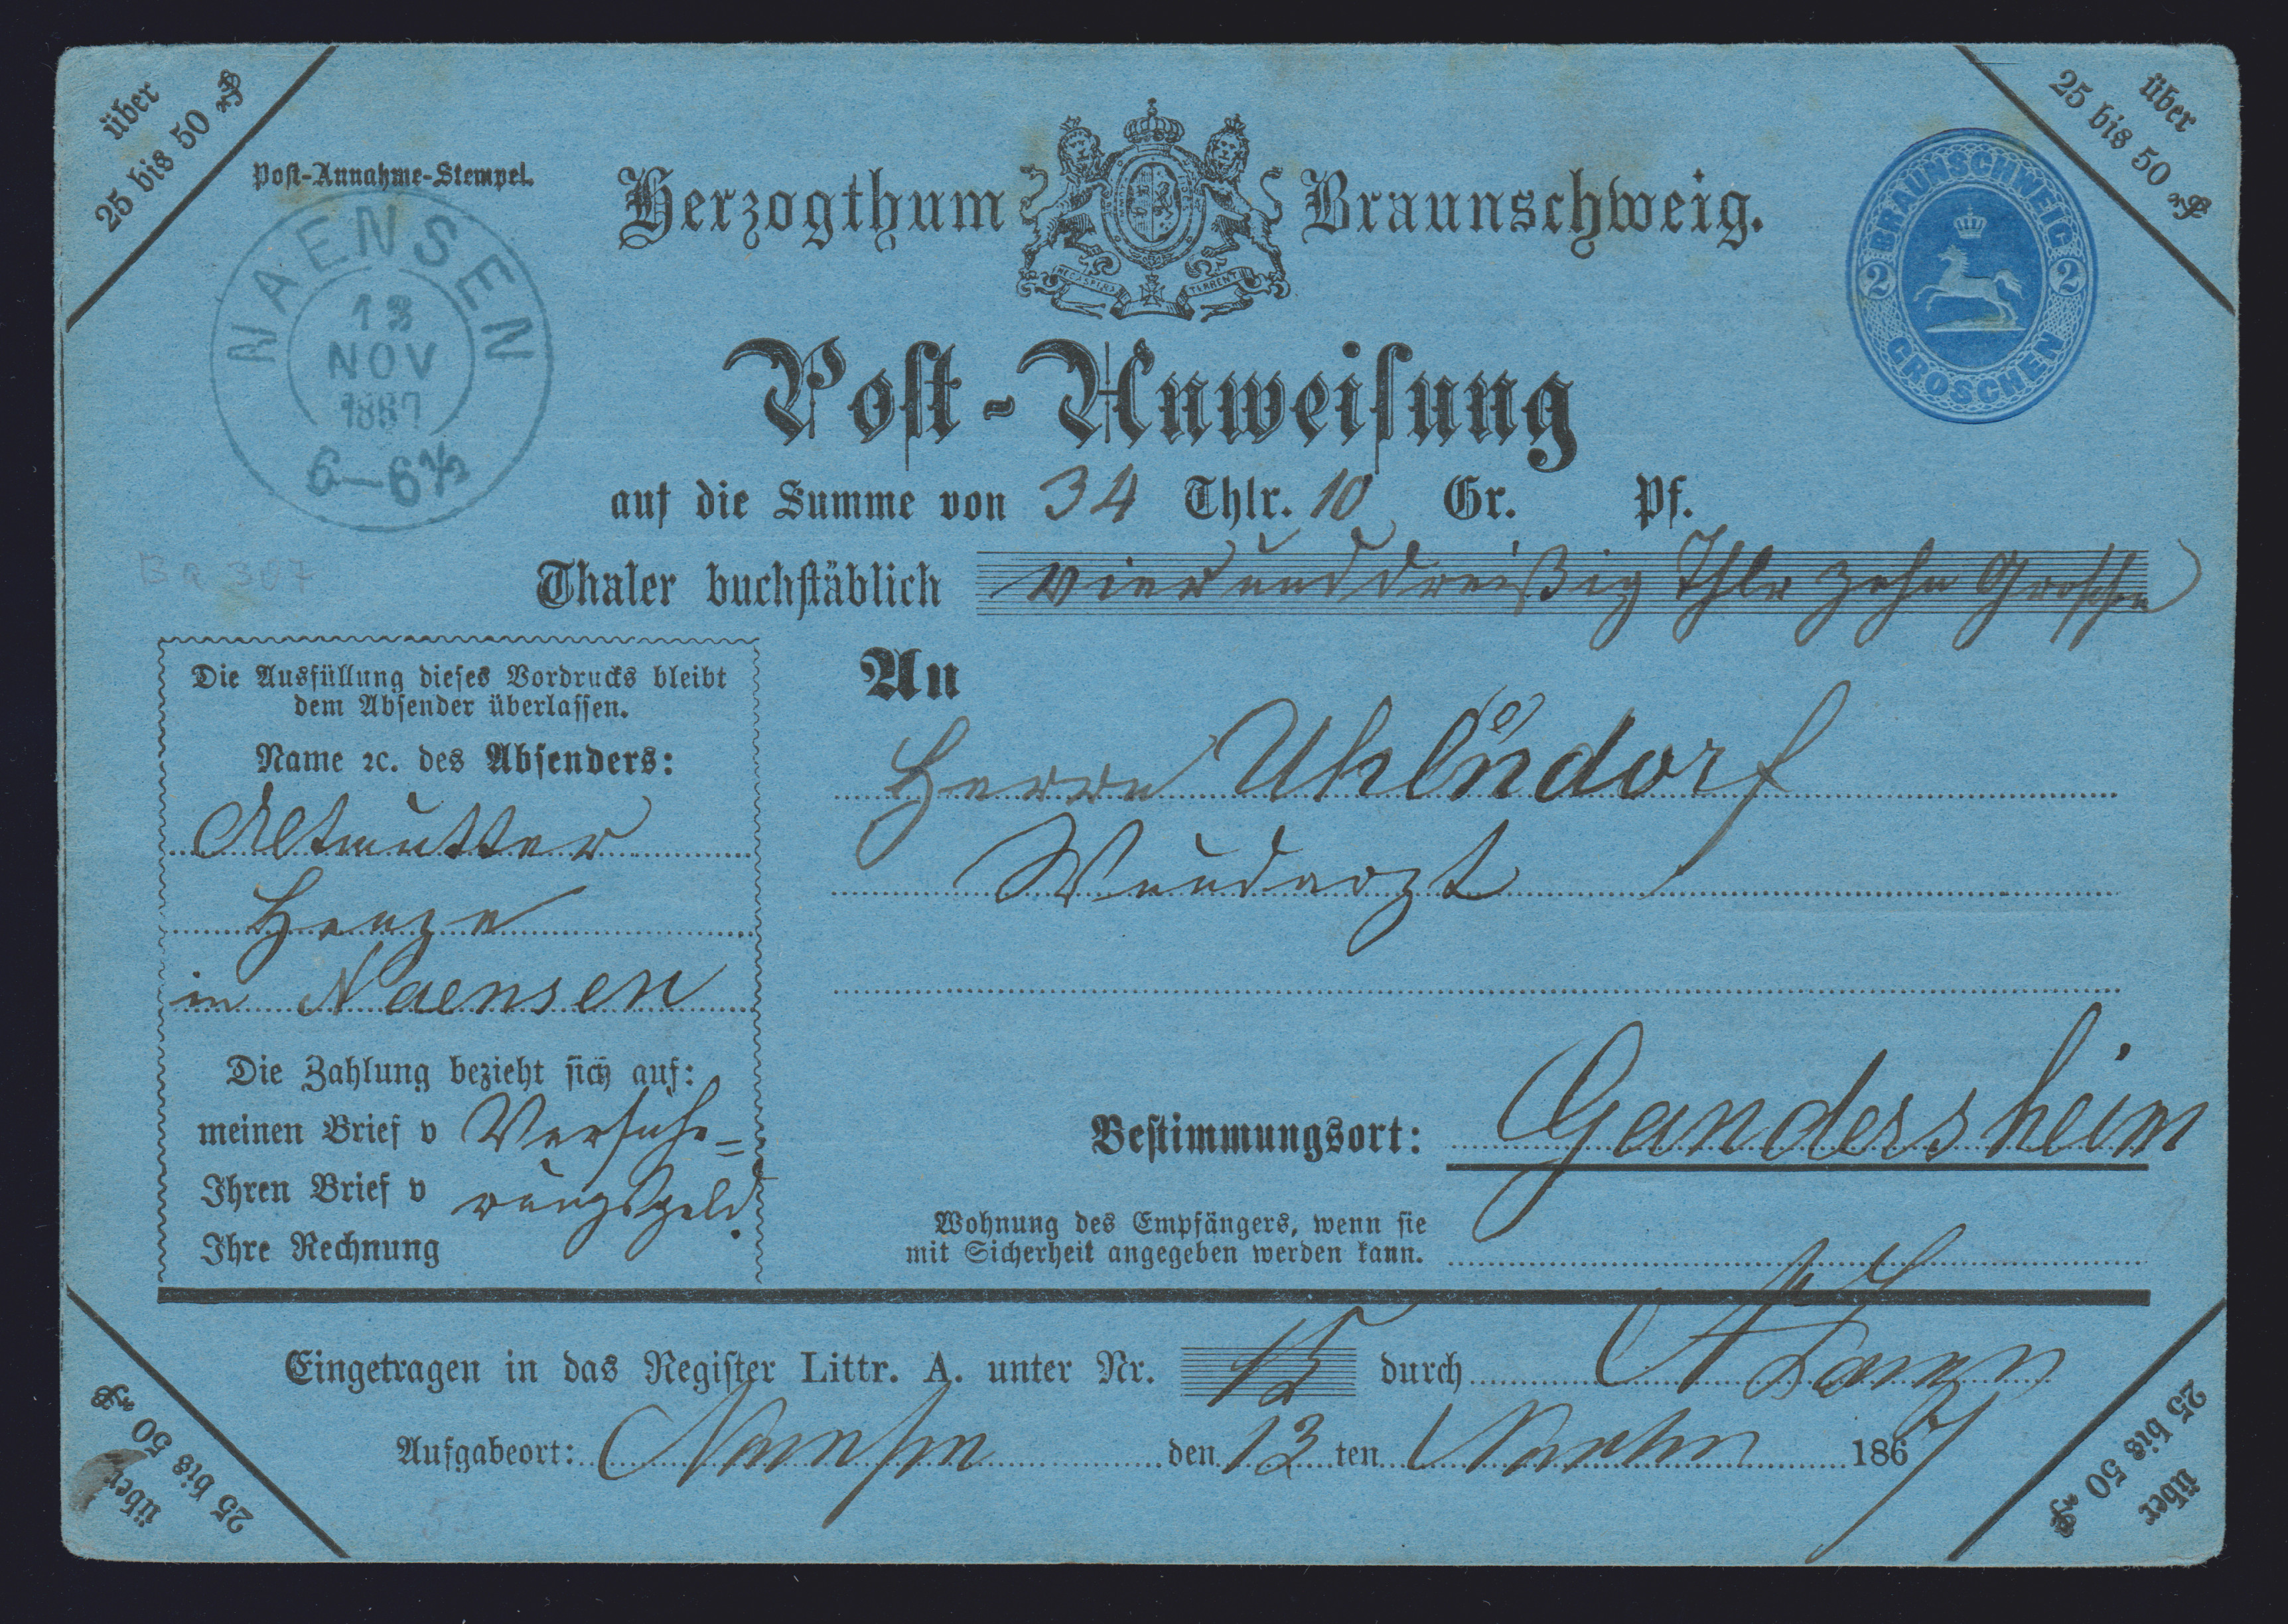 über
25 bis 50 ₰
über
25 bis 50 ₰
Post-Annahme-Stempel.
NAENSEN
13
NOV
1867
6–6½
Herzogthum Braunschweig.
NEC ASPERA TERRENT
BRAUNSCHWEIG
2 2
GROSCHEN
Post-Anweisung
auf die Summe von 34 Thlr. 10 Gr. Pf.
Thaler buchstäblich vierunddreißig Thlr zehn Groschen
Ba 367
Die Ausfüllung dieses Vordrucks bleibt
dem Absender überlassen.
Name ꝛc. des Absenders:
Altmutter
Henze
in Naensen
Die Zahlung bezieht sich auf:
meinen Brief v Versiche=
Ihren Brief v rungsgeld.
Ihre Rechnung
An
Herrn Uhlndorf
Wundarzt
Bestimmungsort: Gandersheim
Wohnung des Empfängers, wenn sie
mit Sicherheit angegeben werden kann.
Eingetragen in das Register Littr. A. unter Nr. 15 durch
Aufgabeort: Naensen den 13 ten Novbr 1867
über
25 bis 50
über
25 bis 50